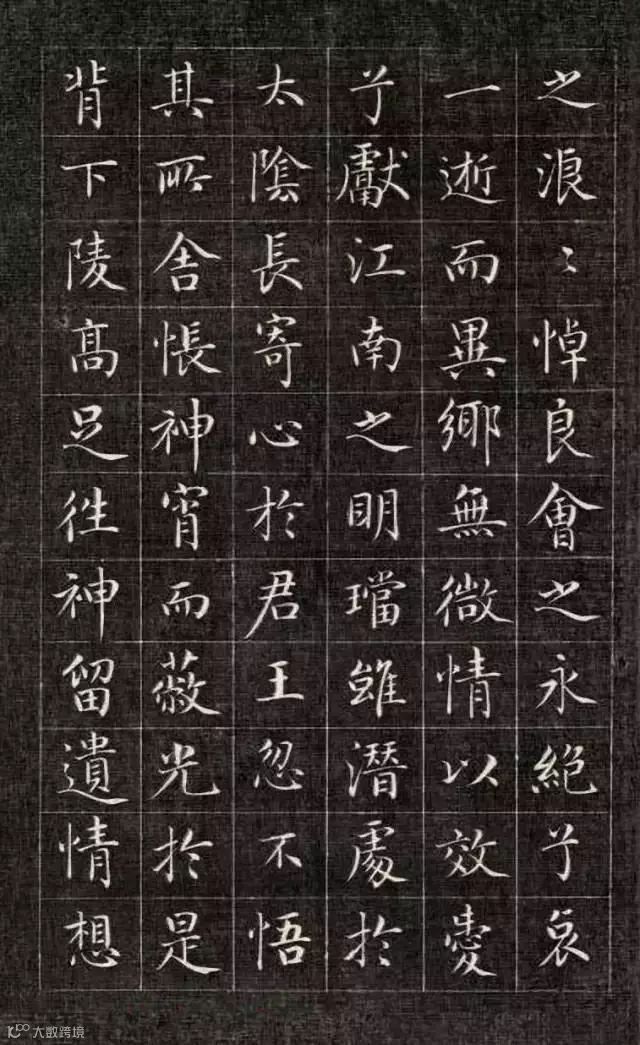 之浪〻悼良會之永絕兮哀
一逝而異鄉無微情以效愛
兮獻江南之明璫雖潛處於
太陰長寄心於君王忽不悟
其所舍悵神宵而蔽光於是
背下陵高足往神留遺情想
大数跨境